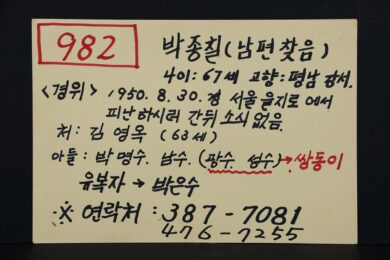 982
박종칠(남편찾음)
나이:67세 고향:평남 강서.
<경위> 1950.8.30.경 서울 을지로 에서
피난하시러 간뒤 소식 없음.
처: 김영옥 (63세)
아들: 박명수. 남수. (광수. 성수)→쌍동이
유복자→박은수
※ 연락처 : 387-7081
476-7255